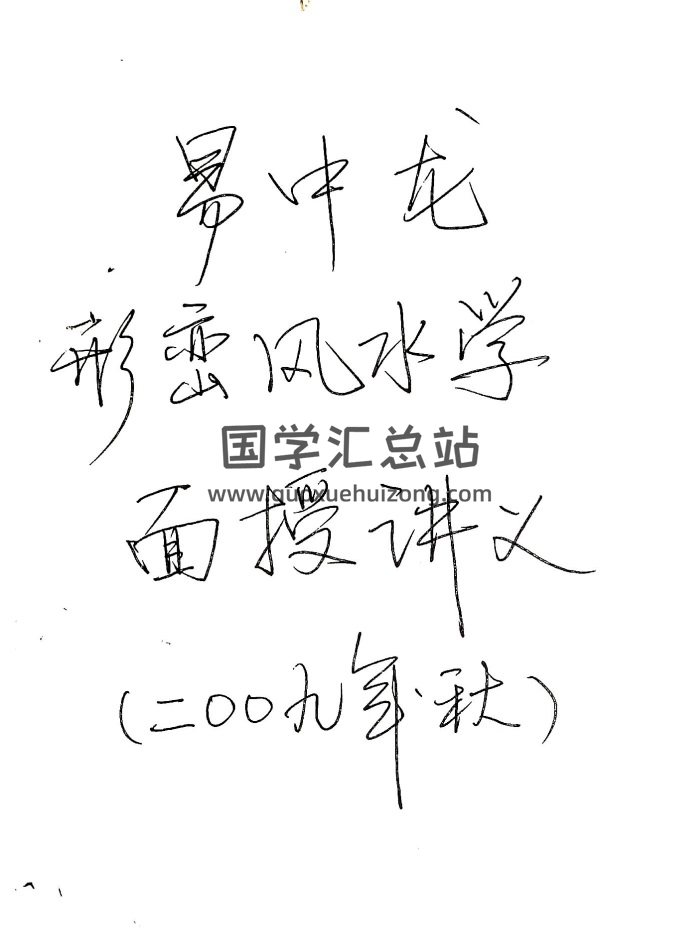 易中龙
形峦风水学
国学汇总站
www.guoxuehuizong.com
面授讲义
(二00九年.秋)